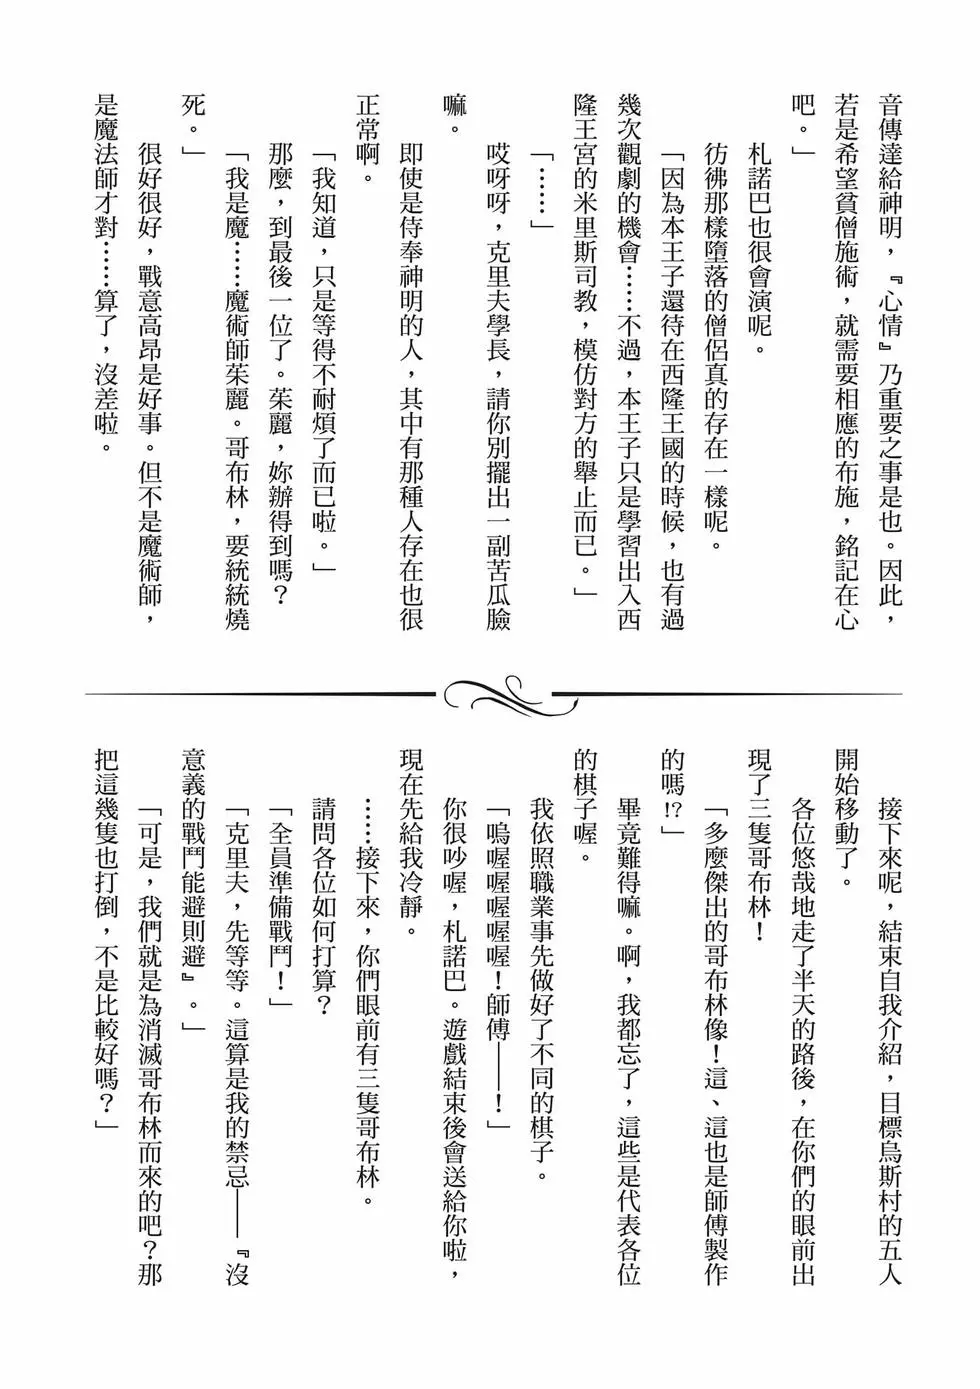 音傳達給神明，『心情』乃重要之事是也。因此，
若是希望貧僧施術，就需要相應的布施，銘記在心
吧。」
札諾巴也很會演呢。
彷彿那樣墮落的僧侶真的存在一樣呢。
「因為本王子還待在西隆王國的時候，也有過
幾次觀劇的機會……不過，本王子只是學習出入西
隆王宮的米里斯司教，模仿對方的舉止而已。」
「……」
哎呀呀，克里夫學長，請你別擺出一副苦瓜臉
嘛。
即使是侍奉神明的人，其中有那種人存在也很
正常啊。
「我知道，只是等得不耐煩了而已啦。」
那麼，到最後一位了。茱麗，妳辦得到嗎？
「我是魔……魔術師茱麗。哥布林，要統統燒
死。」
很好很好，戰意高昂是好事。但不是魔術師，
是魔法師才對……算了，沒差啦。
接下來呢，結束自我介紹，目標烏斯村的五人
開始移動了。
各位悠哉地走了半天的路後，在你們的眼前出
現了三隻哥布林！
「多麼傑出的哥布林像！這、這也是師傅製作
的嗎!?」
畢竟難得嘛。啊，我都忘了，這些是代表各位
的棋子喔。
我依照職業事先做好了不同的棋子。
「嗚喔喔喔喔喔！師傅——！」
你很吵喔，札諾巴。遊戲結束後會送給你啦，
現在先給我冷靜。
……接下來，你們眼前有三隻哥布林。
請問各位如何打算？
「全員準備戰鬥！」
「克里夫，先等等。這算是我的禁忌——『沒
意義的戰鬥能避則避』。」
「可是，我們就是為消滅哥布林而來的吧？那
把這幾隻也打倒，不是比較好嗎？」